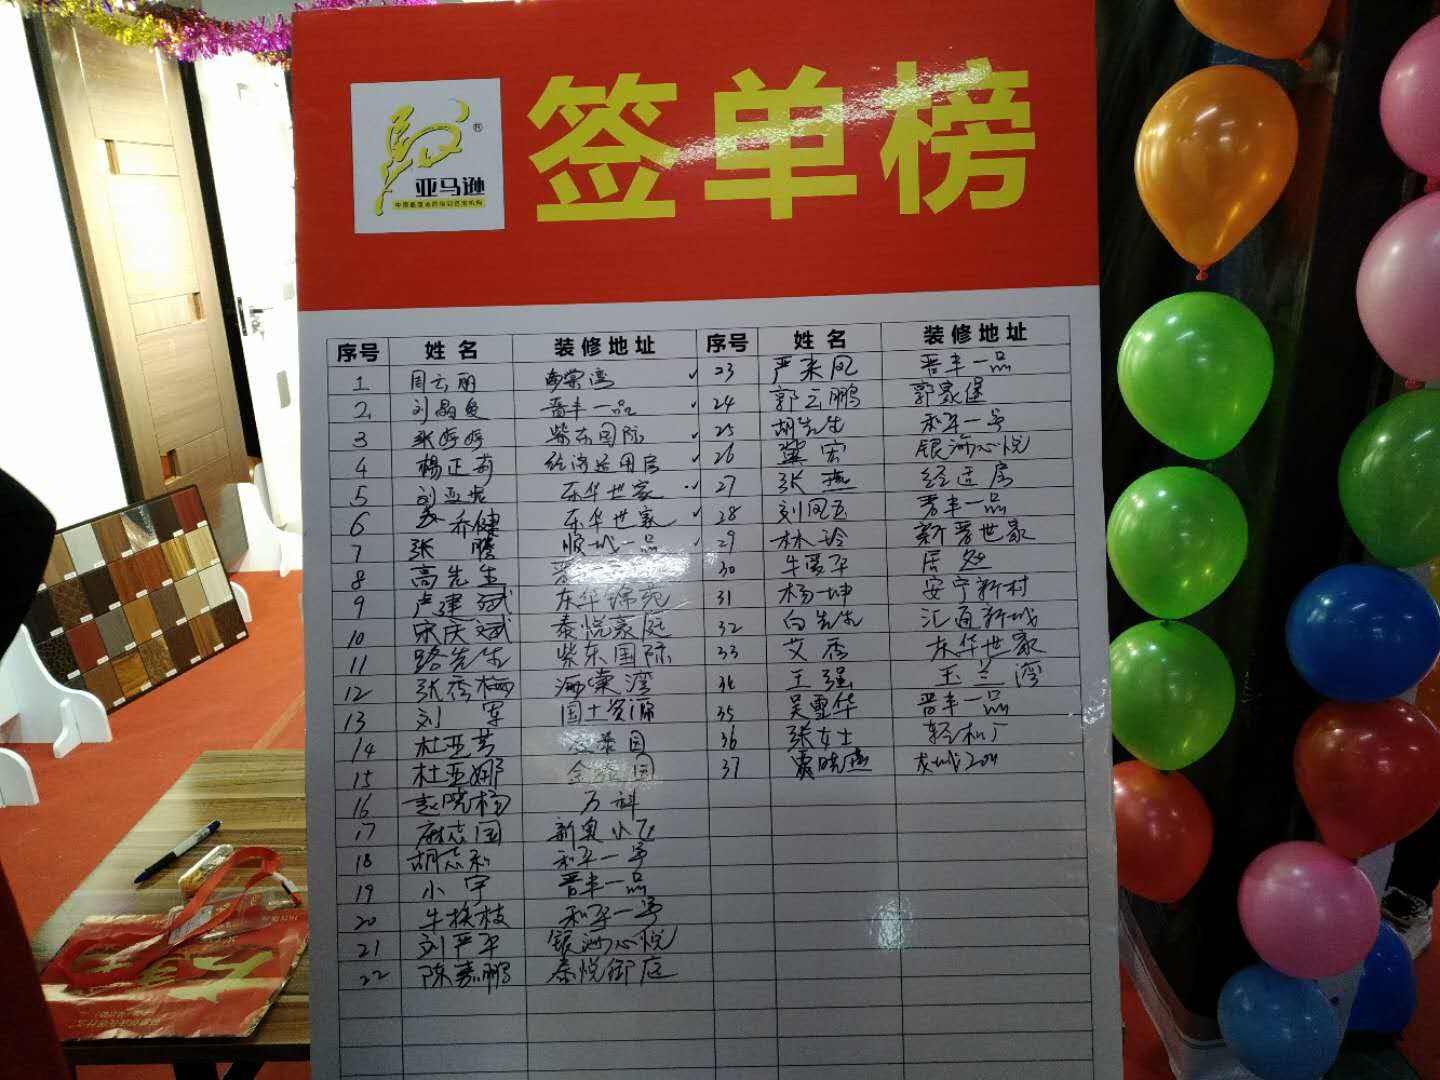 签单榜
亚马逊
序号 姓名 装修地址 序号 姓名 装修地址
1 周云丽 23 严来凤 晋丰一品
2 刘 晋丰一品 24 郭云鹏 郭家堡
3 张婷婷 紫东国际 25 胡先生 和平一号
4 杨正莉 经济适用房 26 冀宏 银海心悦
5 刘亚 东华世家 27 张燕 经适房
6 乔健 东华世家 28 刘凤 晋丰一品
7 张 一品 29 林玲 新晋世家
8 高先生 30 牛爱平 居
9 卢建斌 东华锦苑 31 杨坤 安宁新村
10 宋庆斌 泰悦豪庭 32 白先生 汇通新城
11 路先生 紫东国际 33 艾秀 东华世家
12 张秀梅 海棠湾 34 王强 玉兰湾
13 刘军 国土资源 35 吴重华 晋丰一品
14 杜亚芳 36 张女士 轻机厂
15 杜亚娜 37 晓燕
16 赵晓梅 万科
17 麻志国 新奥小区
18 胡志和 和平一号
19 小宇 晋丰一品
20 牛换枝 和平一号
21 刘严平 银海心悦
22 陈嘉鹏 泰悦御庭